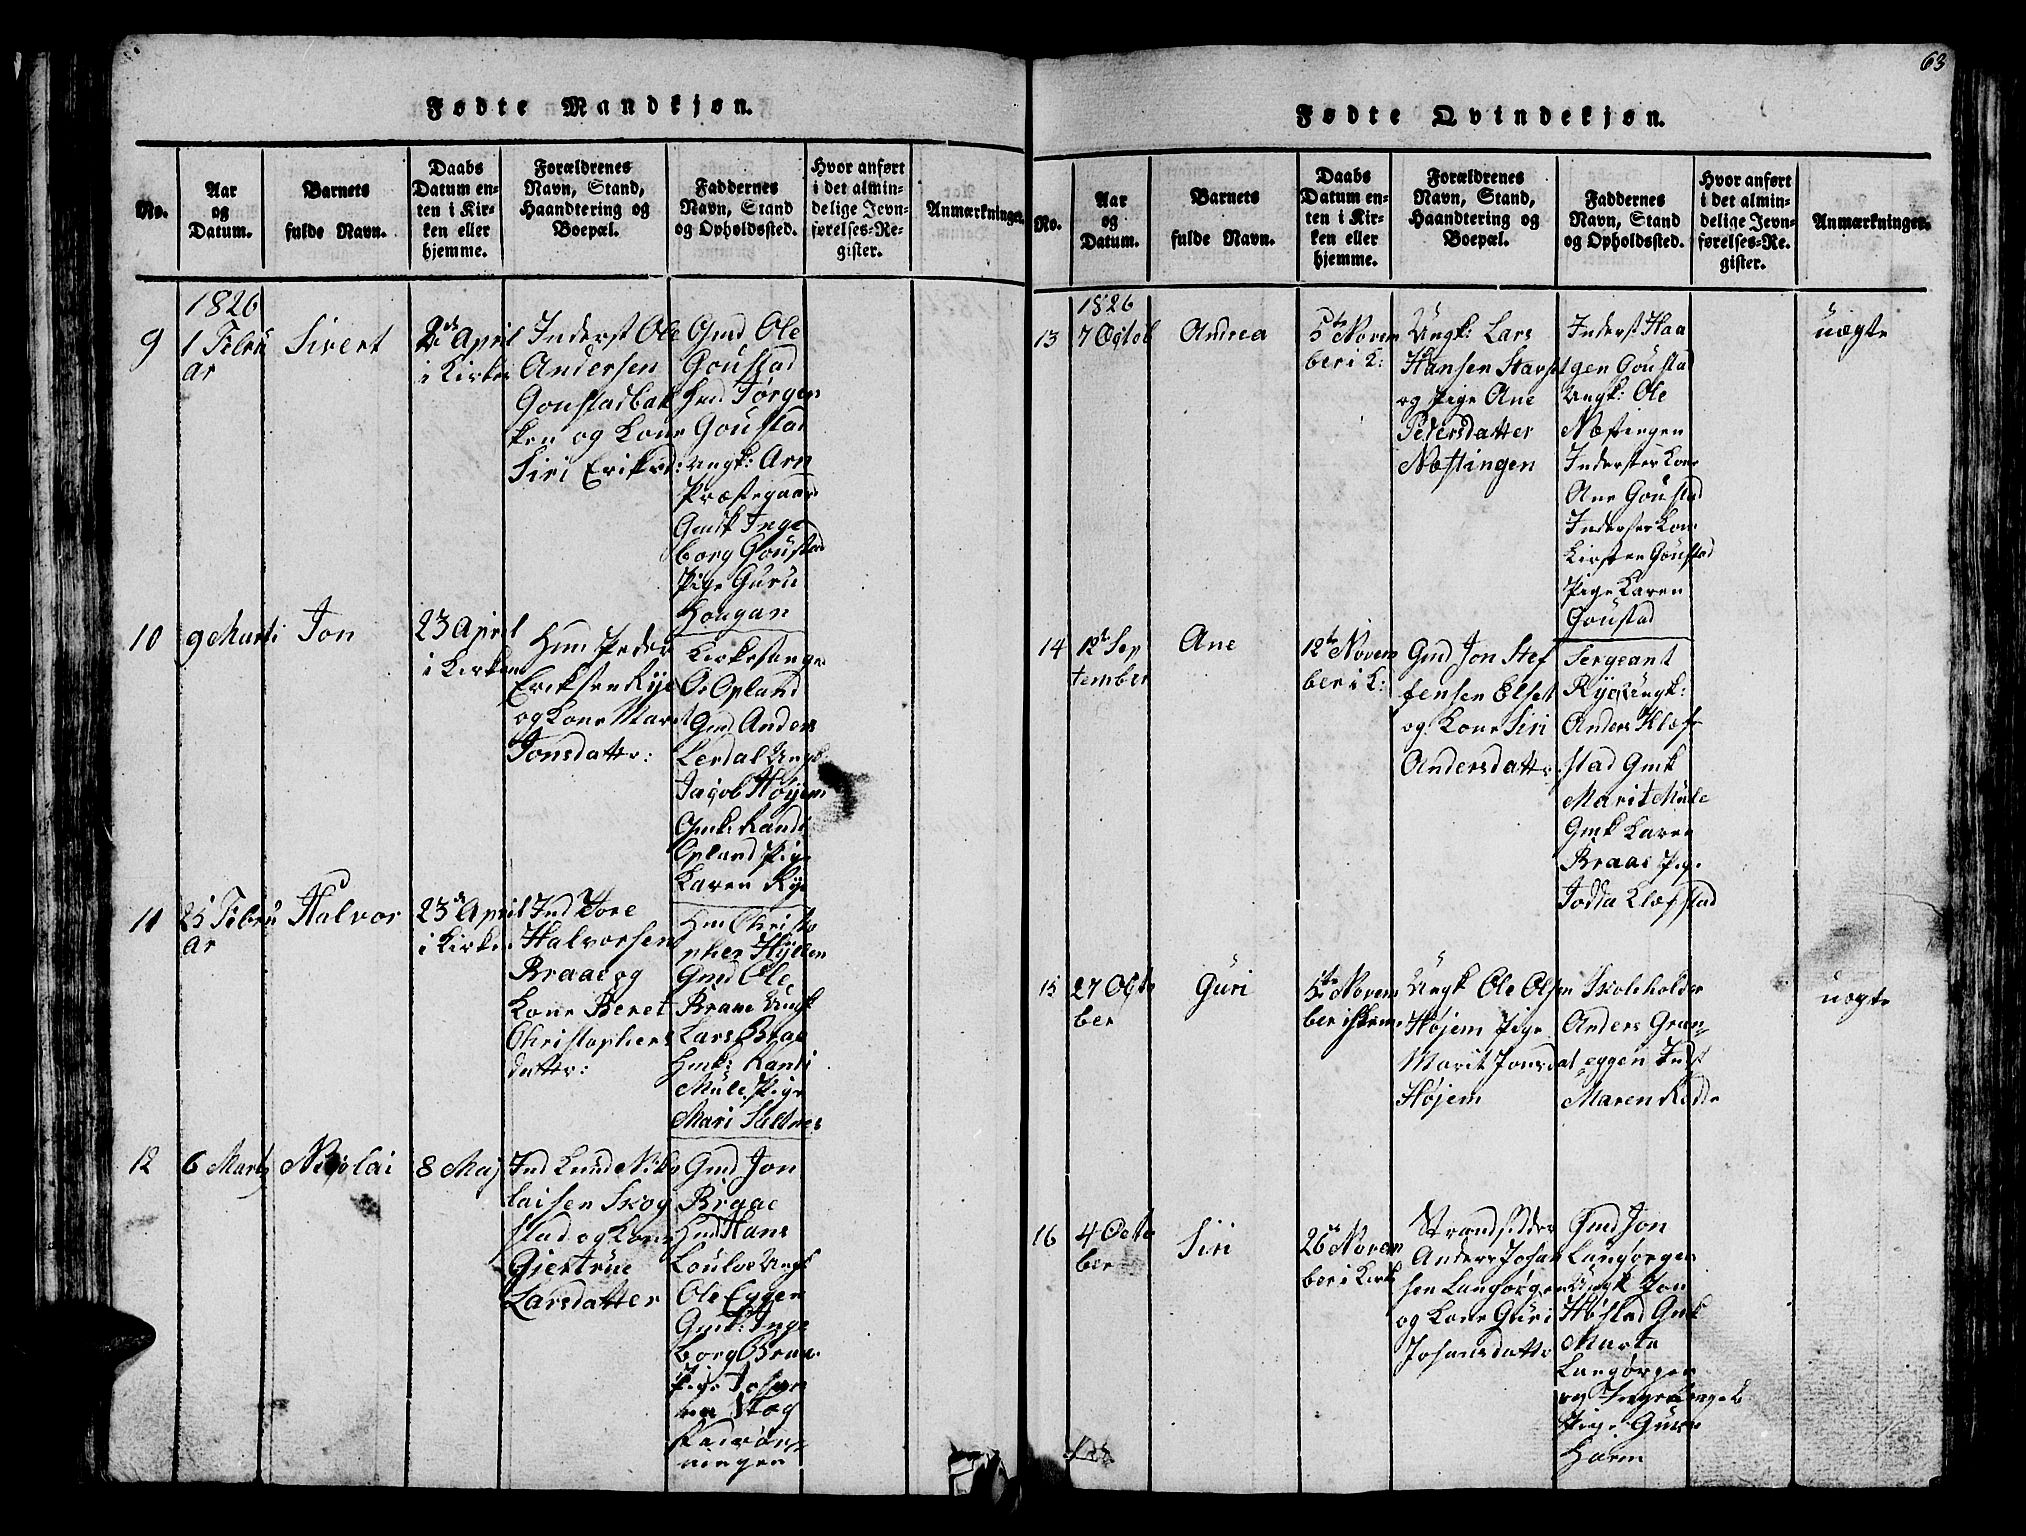 63
Fødte Mandkjøn.
No.
Aar
og
Datum.
Barnets
fulde Navn.
Daabs
Datum en-
ten i Kir-
ken eller
hjemme.
Forældrenes
Navn, Stand,
Haandtering og
Boepæl.
Faddernes
Navn, Stand
og Opholdssted.
Hvor anført
i det almin-
delige Jevn-
førelses-Re-
gister.
Anmærkninger.
1826
9
1 Febru
ar
Sivert
2de April
i Kirken
Inderst Ole
Andersen
Goustadbak
ken og Kone
Siri Eriksd:
Gmd Ole
Goustad
Hmd Jørgen
Goustad
Ungk: Arn
Præstegaard
Gmdk Inge
borg Goustad
Pige Guru
Hougan
10
9 Marti
Jon
23 April
i Kirken
Hmd Peder
Eriksen Rye
og Kone Maret
Jonsdattr:
Kirkesanger
O: Opland
Gmd Anders
Lerdal Ungk
Jacob Høyem
Gmk: Randi
Opland Pige
Karen Rye
11
25 Febru
ar
Halvor
23de April
i Kirken
Ind Tore
Halvorsen
Braae og
Kone Beret
Christophers
datter:
Hm Christo
pher Hyllen
Gmd Ole
Braae Ungk
Lars Braae
Hmk: Randi
Mule Pige
Mari Saltnes
12
6 Marts
Nikolai
8 Maj
Ind Knud Niko
laisen Skog
stad og Kone
Giertrue
Larsdatter
Gmd Jon
Braae
Hmd Hans
Loulve Ungk
Ole Eggen
Gmk: Inge
borg Braae
Pige Johan
na Skog
Rødrøn-
ningen
Fødte Qvindekjøn.
No.
Aar
og
Datum.
Barnets
fulde Navn.
Daabs
Datum en-
ten i Kir-
ken eller
hjemme.
Forældrenes
Navn, Stand,
Haandtering og
Boepæl.
Faddernes
Navn, Stand
og Opholdssted.
Hvor anført
i det almin-
delige Jevn-
førelses-Re.
gister.
Anmærkninger.
1826
13
7 Octob
Andrea
5te Novem
ber i K:
Ungk: Lars
Hansen Stavset
og Pige Ane
Pedersdatter
Næstingen
Inderst Haa
gen Goustad
Ungk: Ole
Næstingen
Inderster Kone
Ane Goustad
Inderster Kone
Kirsten Goustad
Pige Karen
Goustad
uægte
14
12te Sep
tember
Ane
12te Novem
ber i K:
Gmd Jon Stef
fensen Elset
og Kone Siri
Andersdattr.
Sergeant
Rye Ungk:
Anders Klæf
stad Gmk
Marit Mule
Gmk Karen
Braae Pige
Jodda Klæfstad
15
27 Octo
ber
Guri
5te Novem
ber i Kirk
Ungk Ole Olsen
Højem Pige
Marit Jonsdat
Højem
Skoleholder
Anders Gran-
eggen Indst
Maren Rødde
uægte
16
4 Octo
ber
Siri
26de Novem
ber i Kirk
Strandsidder
Anders Johan
sen Langørgen
og Kone Guri
Johansdattr
Gmd Jon
Langørgen
Ungk Jon
Høstad Gmk
Marta
Langørgen
Pige Guru
Harm